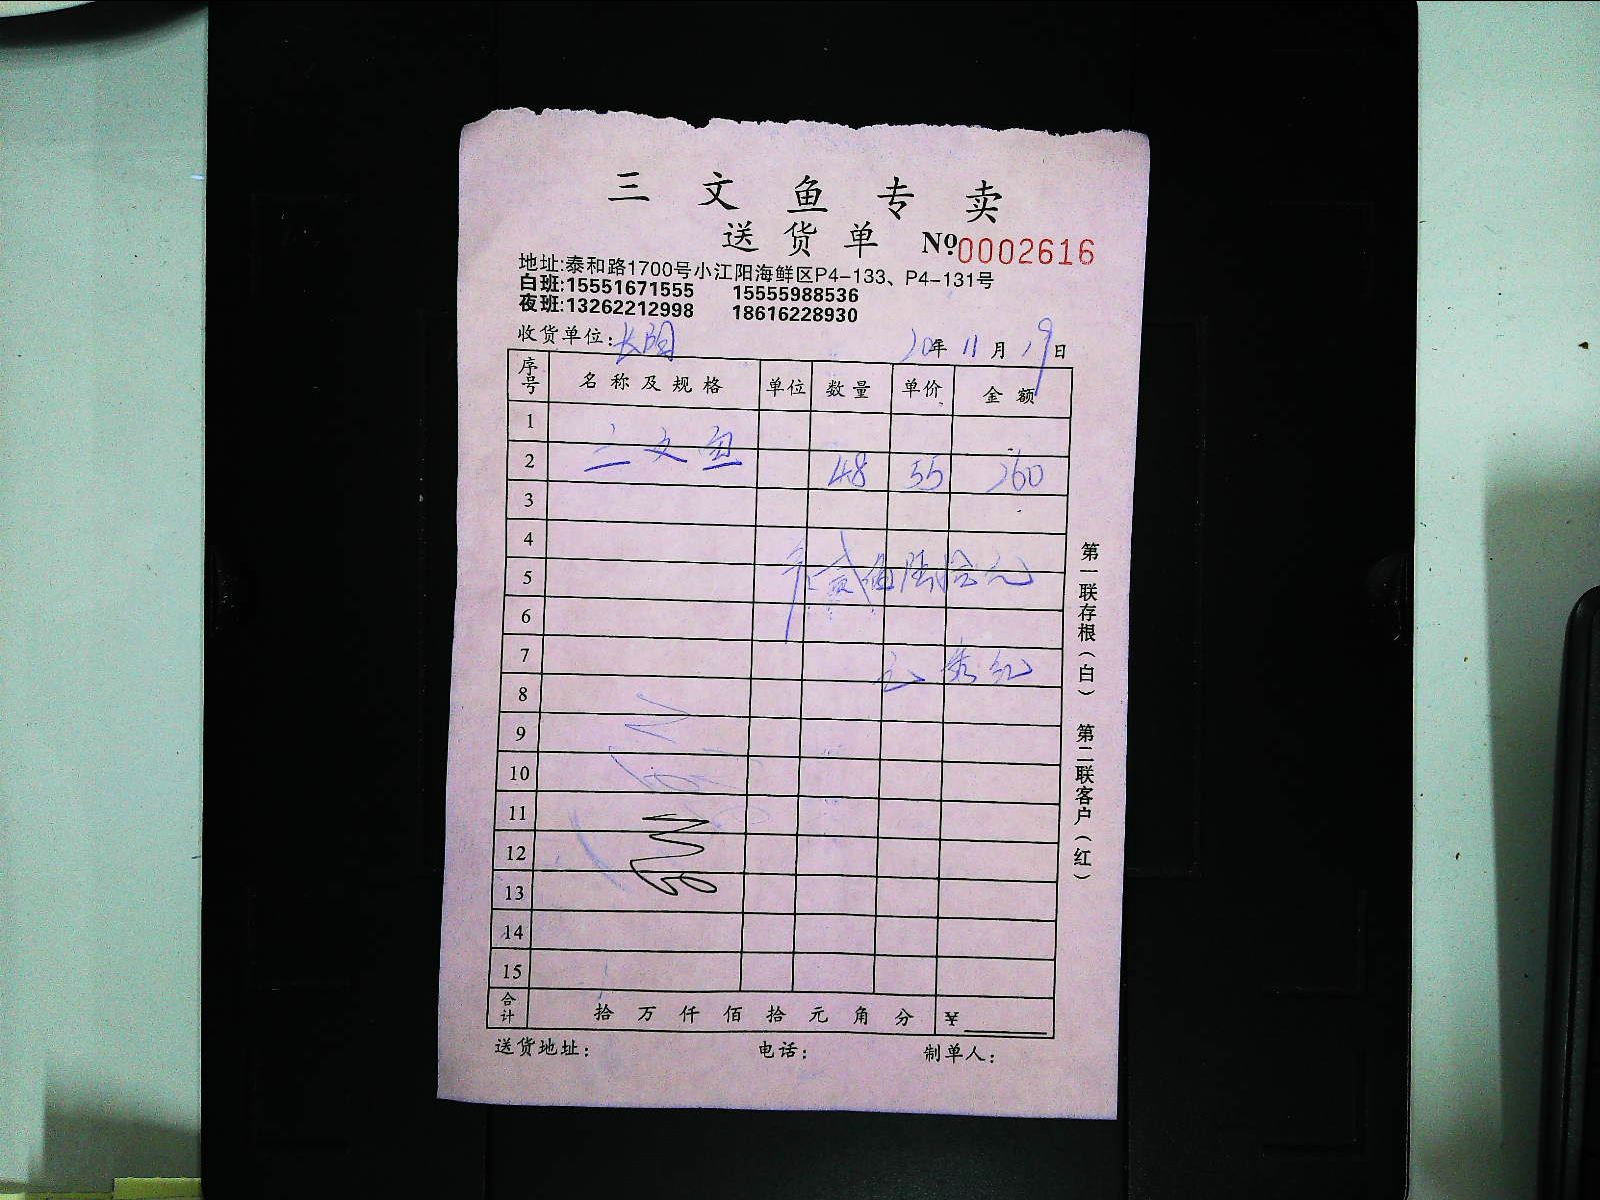 三文鱼专卖
送货单 №0002616
地址:泰和路1700号小江阳海鲜区P4-133、P4-131号
白班:15551671555 15555988536
夜班:13262212998 18616228930
收货单位: 20年11月19日
序号 名称及规格 单位 数量 单价 金额
1
2 三文鱼 48 55 260
3
4
5 贰佰陆拾元
6
7
8
9
10
11
12
13
14
15
合计 拾 万 仟 佰 拾 元 角 分 ¥
送货地址: 电话: 制单人:
第一联存根(白) 第二联客户(红)